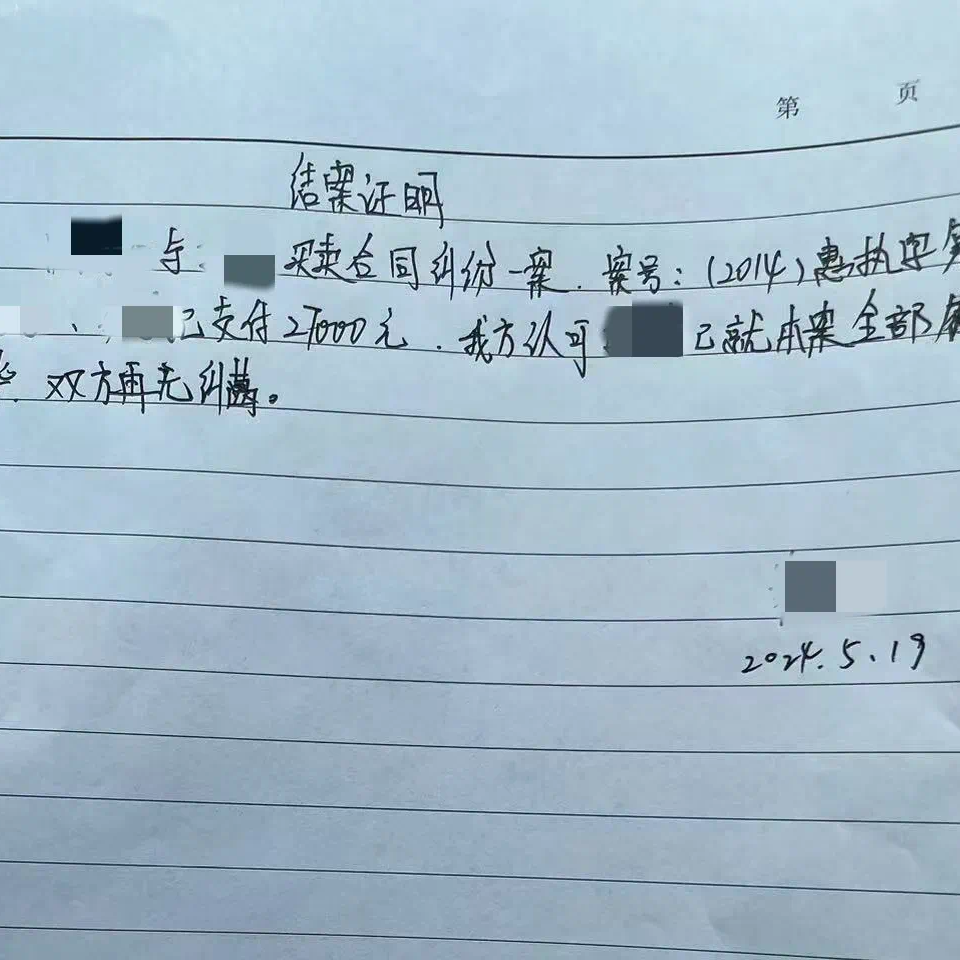 第 页
结案证明
与 买卖合同纠纷一案. 案号:(2014)惠执字第
已支付27000元.我方认可 已就本案全部
双方再无纠葛。
2024.5.19